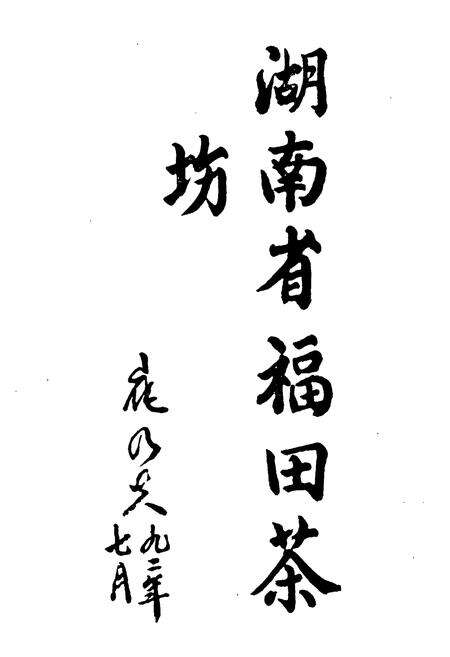 湖南省福田茶
坊
崔乃夫
九二年
七月